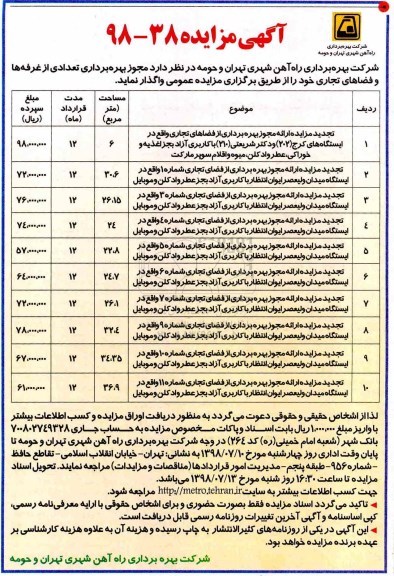 آگهی مزایده ۳۸-۹۸
شرکت بهره‌برداری
راه‌آهن شهری تهران و حومه
شرکت بهره‌برداری راه‌آهن شهری تهران و حومه در نظر دارد مجوز بهره‌برداری تعدادی از غرفه‌ها
و فضاهای تجاری خود را از طریق برگزاری مزایده عمومی واگذار نماید.
ردیف موضوع مساحت (متر مربع) مدت قرارداد (ماه) مبلغ سپرده (ریال)
۱ تجدید مزایده ارائه مجوز بهره برداری از فضاهای تجاری واقع در ۶ ۱۲ ۹۸.۰۰۰.۰۰۰
ایستگاه‌های کرج (۲۰۲) و دکتر شریعتی (۲۱۰) با کاربری آزاد بجز اغذیه و
خوراکی، عطر و ادکلن، میوه و اقلام سوپرمارکت
۲ تجدید مزایده ارائه مجوز بهره برداری از فضای تجاری شماره ۱ واقع در ۳۰.۶ ۱۲ ۷۲.۰۰۰.۰۰۰
ایستگاه میدان ولیعصر ایوان انتظار با کاربری آزاد بجز عطر و ادکلن و موبایل
۳ تجدید مزایده ارائه مجوز بهره برداری از فضای تجاری شماره ۳ واقع در ۲۶.۱۵ ۱۲ ۷۶.۰۰۰.۰۰۰
ایستگاه میدان ولیعصر ایوان انتظار با کاربری آزاد بجز عطر و ادکلن و موبایل
۴ تجدید مزایده ارائه مجوز بهره برداری از فضای تجاری شماره ۴ واقع در ۲۴ ۱۲ ۷۴.۰۰۰.۰۰۰
ایستگاه میدان ولیعصر ایوان انتظار با کاربری آزاد بجز عطر و ادکلن و موبایل
۵ تجدید مزایده ارائه مجوز بهره برداری از فضای تجاری شماره ۵ واقع در ۲۲.۸ ۱۲ ۵۷.۰۰۰.۰۰۰
ایستگاه میدان ولیعصر ایوان انتظار با کاربری آزاد بجز عطر و ادکلن و موبایل
۶ تجدید مزایده ارائه مجوز بهره برداری از فضای تجاری شماره ۶ واقع در ۲۴.۷ ۱۲ ۶۴.۰۰۰.۰۰۰
ایستگاه میدان ولیعصر ایوان انتظار با کاربری آزاد بجز عطر و ادکلن و موبایل
۷ تجدید مزایده ارائه مجوز بهره برداری از فضای تجاری شماره ۷ واقع در ۲۶.۱ ۱۲ ۷۲.۰۰۰.۰۰۰
ایستگاه میدان ولیعصر ایوان انتظار با کاربری آزاد بجز عطر و ادکلن و موبایل
۸ تجدید مزایده ارائه مجوز بهره برداری از فضای تجاری شماره ۹ واقع در ۳۲.۴ ۱۲ ۷۸.۰۰۰.۰۰۰
ایستگاه میدان ولیعصر ایوان انتظار با کاربری آزاد بجز عطر و ادکلن و موبایل
۹ تجدید مزایده ارائه مجوز بهره برداری از فضای تجاری شماره ۱۰ واقع در ۳۴.۳۵ ۱۲ ۶۷.۰۰۰.۰۰۰
ایستگاه میدان ولیعصر ایوان انتظار با کاربری آزاد بجز عطر و ادکلن و موبایل
۱۰ تجدید مزایده ارائه مجوز بهره برداری از فضای تجاری شماره ۱۱ واقع در ۳۶.۹ ۱۲ ۶۱.۰۰۰.۰۰۰
ایستگاه میدان ولیعصر ایوان انتظار با کاربری آزاد بجز عطر و ادکلن و موبایل
لذا از اشخاص حقیقی و حقوقی دعوت می‌گردد به منظور دریافت اوراق مزایده و کسب اطلاعات بیشتر
با واریز مبلغ ۱.۰۰۰.۰۰۰ ریال بابت اسناد و پاکات مخصوص مزایده به حساب جاری ۷۰۰۸۰۲۷۴۹۳۲۸
بانک شهر (شعبه امام خمینی (ره) کد ۲۶۴) در وجه شرکت بهره‌برداری راه آهن شهری تهران و حومه تا
پایان وقت اداری روز چهارشنبه مورخ ۱۳۹۸/۰۷/۱۰ به نشانی: تهران- خیابان انقلاب اسلامی- تقاطع حافظ
- شماره ۹۵۶- طبقه پنجم- مدیریت امور قراردادها (مناقصات و مزایدات) مراجعه نمایند. تحویل اسناد
مزایده تا ساعت ۱۶:۳۰ روز شنبه مورخ ۱۳۹۸/۰۷/۱۳ می‌باشد.
جهت کسب اطلاعات بیشتر به سایت http://metro.tehran.ir مراجعه شود.
تاکید می‌گردد اسناد مزایده فقط بصورت حضوری و برای اشخاص حقوقی با ارایه معرفی‌نامه رسمی،
کپی اساسنامه و آگهی آخرین تغییرات روزنامه رسمی قابل دریافت است.
این آگهی در یکی از روزنامه‌های کثیرالانتشار به چاپ رسیده و هزینه آن به علاوه هزینه کارشناسی بر
عهده برنده مزایده خواهد بود.
شرکت بهره برداری راه آهن شهری تهران و حومه